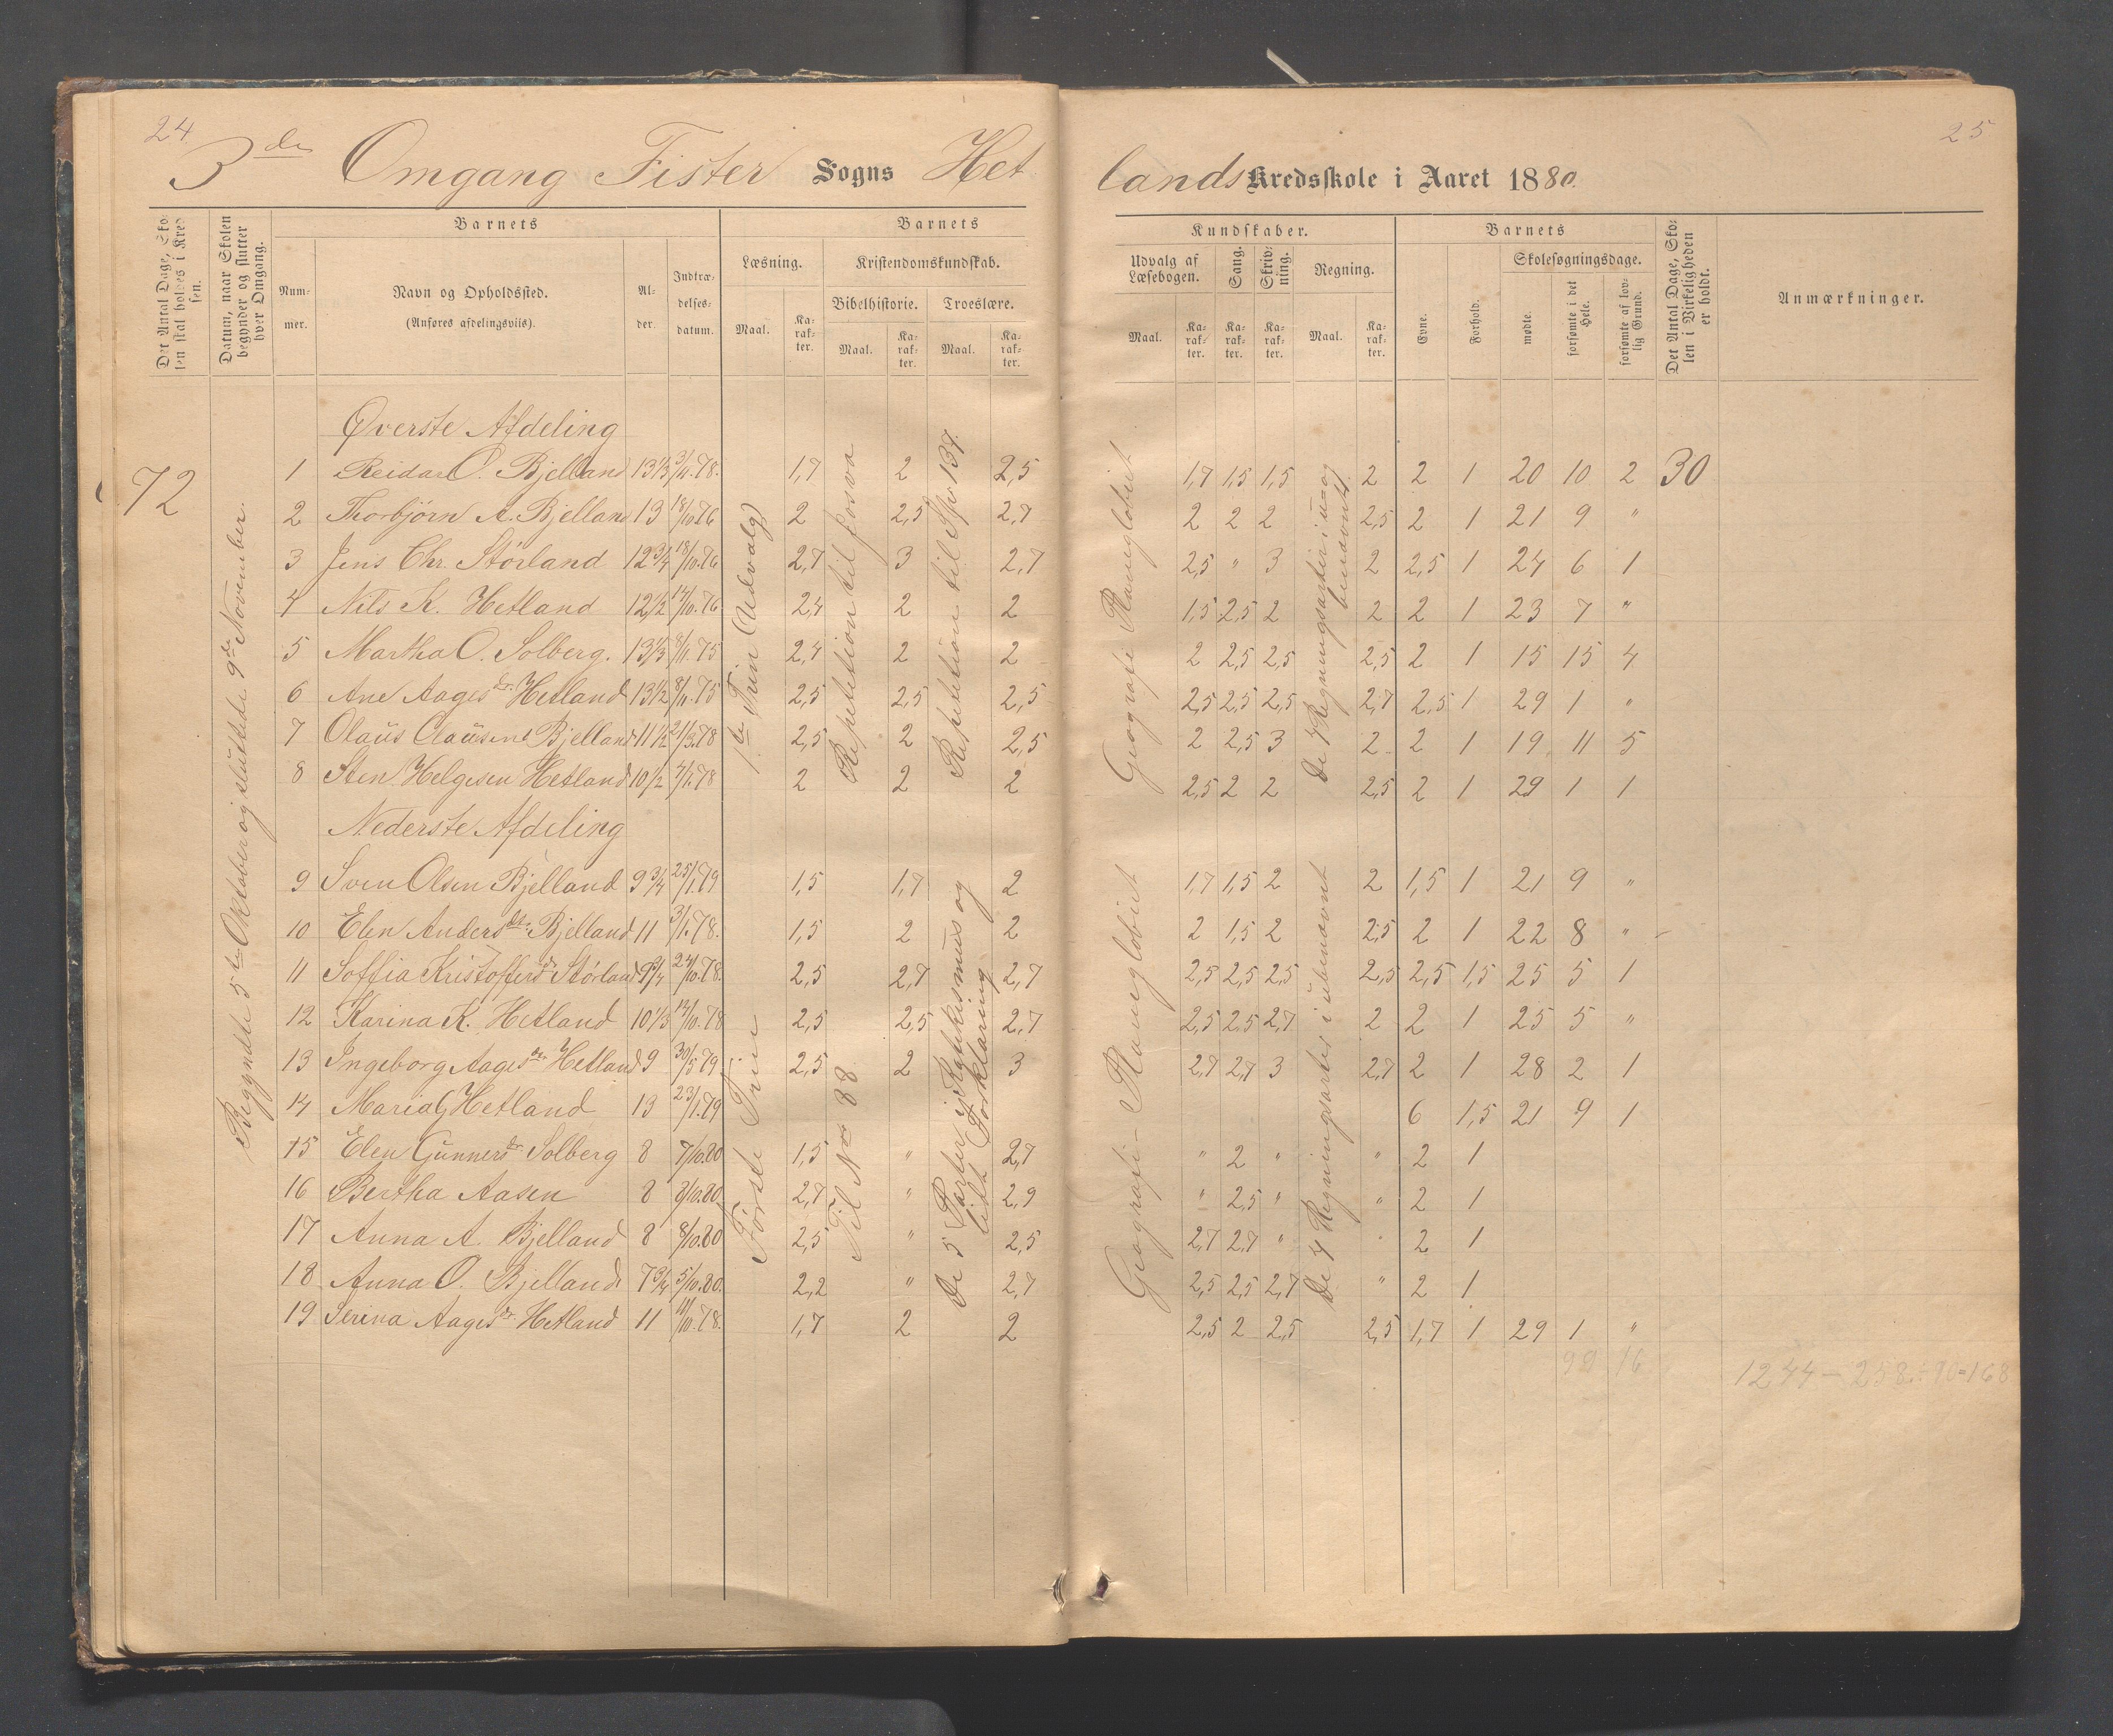 24
25
3de Omgang Fister Sogns Hetlands Kredsskole i Aaret 1880.
Det Antal Dage, Skolen skal holdes i Kredsen.
Datum, naar Skolen begynder og slutter hver Omgang.
Barnets
Nummer.
Navn og Opholdssted.
(Anføres afdelingsviis).
Alder.
Indtrædelsesdatum.
Barnets Kundskaber.
Læsning.
Maal.
Karakter.
Kristendomskundskab.
Bibelhistorie.
Maal.
Karakter.
Troeslære.
Maal.
Karakter.
Udvalg af Læsebogen.
Maal.
Karakter.
Sang.
Karakter.
Skrivning.
Karakter.
Regning.
Maal.
Karakter.
Barnets
Evne.
Forhold.
Skolesøgningsdage.
mødte.
forsømte i det Hele.
forsømte af lovlig Grund.
Det Antal Dage, Skolen i Virkeligheden er holdt.
Anmærkninger.
72
Begyndte 5te Oktober og sluttede 9de November.
Øverste Afdeling
1ste Trin (Udvalg)
Repetition til Josva
Repetition til Spr 137.
Geografi Planiglobiet
De 4 Regningsarter i u= og benævnt.
1 Reidar O. Bjelland 13 1/3 3/4.78. 1,7 2 2,5 1,7 1,5 1,5 2 2 1 20 10 2 30
2 Thorbjörn A. Bjelland 13 18/10.76 2 2,5 2,7 2 2 2 2,5 2 1 21 9 "
3 Jens Chr. Störland 12 3/4 18/10.76 2,7 3 2,7 2,5 " 3 2 2,5 1 24 6 1
4 Nils K. Hetland 12 1/2 14/10.76 2,4 2 2 1,5 2,5 2 2 2 1 23 7 "
5 Martha O. Solberg. 13 1/3 8/11.75 2,4 2 2 2 2,5 2,5 2,5 2 1 15 15 4
6 Ane Aagesdr. Hetland 13 1/2 8/11.75 2,5 2,5 2,5 2,5 2,5 2,5 2,7 2,5 1 29 1 "
7 Olaus Clausen Bjelland 11 1/2 21/3.78 2,5 2 2,5 2 2,5 3 2 2 1 19 11 5
8 Sten Helgesen Hetland 10 1/2 4/1.78 2 2 2 2,5 2 2 2,5 2 1 29 1 1
Nederste Afdeling
Første Trin
Til No 88
De 5 Parter i Katekismus og lidt Forklaring
Geografi - Planiglobiet
De 4 Regningsarter i ubenævnt
9 Sven Olsen Bjelland 9 3/4 25/1.79 1,5 1,7 2 1,7 1,5 2 2 1,5 1 21 9 "
10 Elen Andersdtr. Bjelland 11 3/1.78. 1,5 2 2 2 1,5 2 2,5 2 1 22 8 "
11 Soffia Kristoffersdr Störland 9 3/4 24/10.78. 2,5 2,7 2,7 2,5 2,5 2,5 2,5 2,5 1,5 25 5 1
12 Karina K. Hetland 10 1/3 14/10.78 2,5 2,5 2,7 2,5 2,5 2,7 2 2 1 25 5 "
13 Ingeborg Aagesdr Hetland 9 30/5.79 2,5 2 3 2,7 2,7 3 2,7 2 1 28 2 1
14 Maria G Hetland 13 23/1.79 6 1,5 21 9 1
15 Elen Gunnersdr Solberg 8 7/10.80 1,5 " 2,7 " 2 " " 2 1
16 Bertha Aasen 8 8/10.80 2,7 " 2,9 " 2,5 " " 2 1
17 Anna A. Bjelland 8 8/10.80 2,5 " 2,5 2,7 2,7 " " 2 1
18 Anna O. Bjelland 7 3/4 5/10.80. 2,2 " 2,7 2,5 2,5 2,7 " 2 1
19 Serina Aagesdr. Hetland 11 11/10.78. 1,7 2 2 2,5 2 2,5 2,5 1,7 1 29 1 "
98 16
1244 - 258